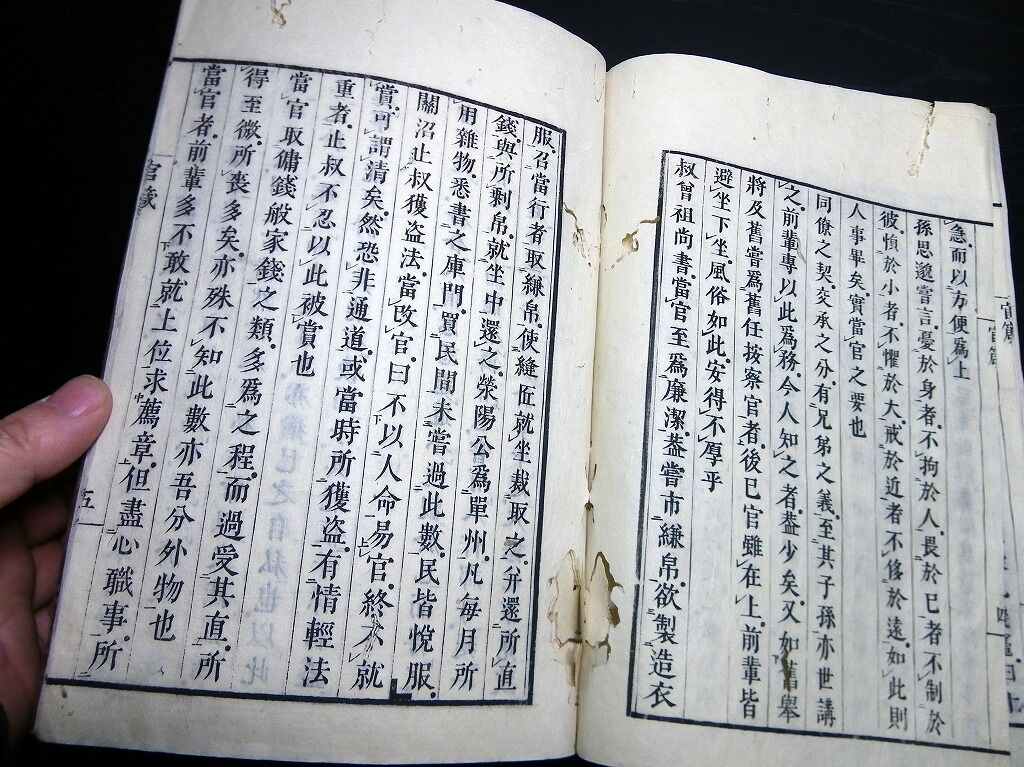 急而以方便爲上
孫思邈嘗言憂於身者不拘於人畏於己者不制於
彼愼於小者不懼於大戒於近者不侈於遠如此則
人事畢矣實當官之要也
同僚之契交承之分有兄弟之義至其子孫亦世講
之前輩專以此爲務今人知之者葢少矣又如舊舉
將及舊嘗爲舊任按察官者後已官雖在上前輩皆
避坐下坐風俗如此安得不厚乎
叔曾祖尚書當官至爲廉潔葢嘗市縑帛欲製造衣
服召當行者取縑帛使縫匠就坐裁取之幷還所直
錢與所剩帛就坐中還之滎陽公爲單州凡每月所
用雜物悉書之庫門買民閒未嘗過此數民皆悅服
關沼止叔獲盜法當改官曰不以人命易官終不就
賞可謂清矣然恐非通道或當時所獲盜有情輕法
重者止叔不忍以此被賞也
當官取傭錢般家錢之類多爲之程而過受其直所
得至微所喪多矣亦殊不知此數亦吾分外物也
當官者前輩多不敢就上位求薦章但盡心職事所
官箴
五